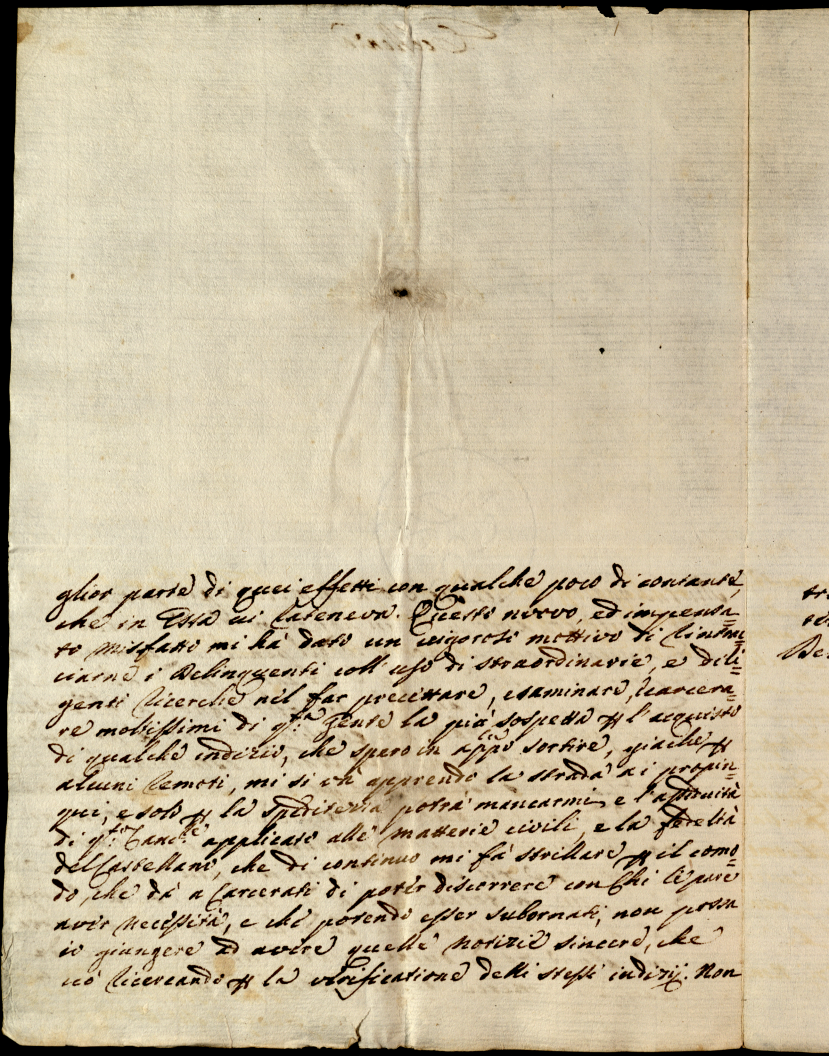 glior parte di quei effetti con qualche poco di contante,
che in Essa vi teneva. Questo nuovo, ed impensa=
to misfatto mi hà dato un vigoroso mottivo di rintrac=
ciarne i Delinquenti coll' uso di straordinarie, e dili=
genti ricerche nel far precettare, esaminare, e carcera=
re moltissimi di q.ta gente la più sospetta p l'acquisto
di qualche indizio, che spero in app.o sortire, giache p
alcuni remoti, mi si và aprendo la strada ai propin=
qui, e solo p la potrà mancarmi e l'
di q.to Canc.re applicato alle matterie civili, e la fedeltà
del Castellano, che di continuo mi fà strillare p il como=
do, che dà a Carcerati di poter discorrere con Chi le pare
aver necessità, e che potendo esser subornati, non possa
io giungere ad avere quelle notizie sincere, che
vò ricercando p la verificatione delli stessi indizij. Non